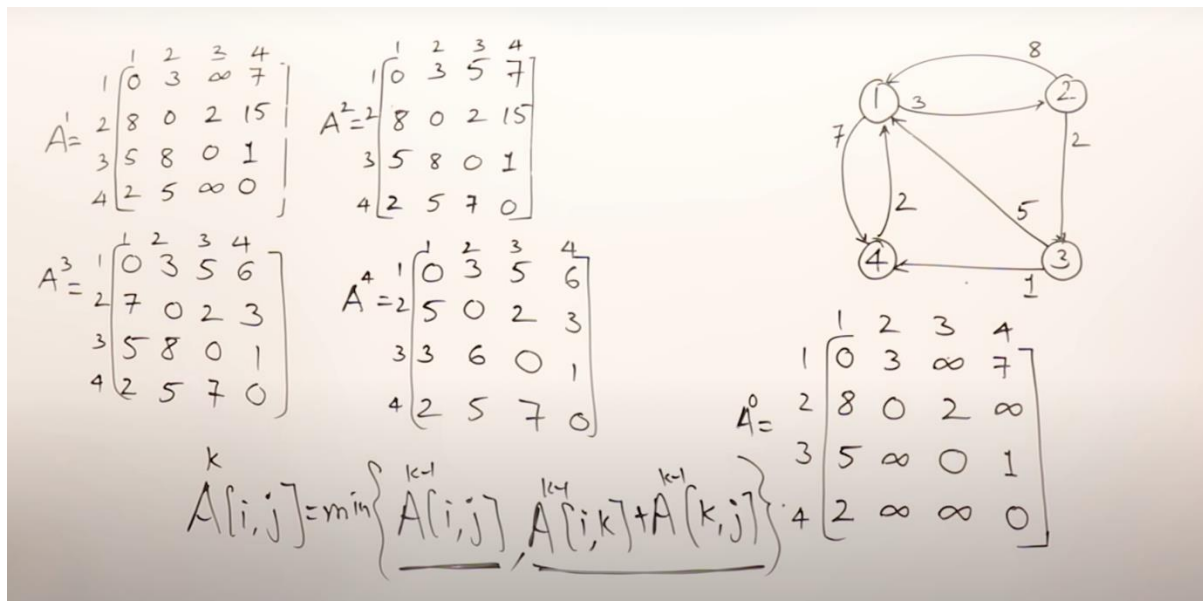 1 2 3 4
A¹= 1 0 3 ∞ 7
2 8 0 2 15
3 5 8 0 1
4 2 5 ∞ 0
1 2 3 4
A²= 1 0 3 5 7
2 8 0 2 15
3 5 8 0 1
4 2 5 7 0
8
1 3 2
7 2
2 5
4 1 3
1 2 3 4
A³= 1 0 3 5 6
2 7 0 2 3
3 5 8 0 1
4 2 5 7 0
1 2 3 4
A⁴= 1 0 3 5 6
2 5 0 2 3
3 3 6 0 1
4 2 5 7 0
1 2 3 4
A⁰= 1 0 3 ∞ 7
2 8 0 2 ∞
3 5 ∞ 0 1
4 2 ∞ ∞ 0
Aᵏ[i,j]=min{Aᵏ⁻¹[i,j], Aᵏ⁻¹[i,k]+Aᵏ⁻¹[k,j]}